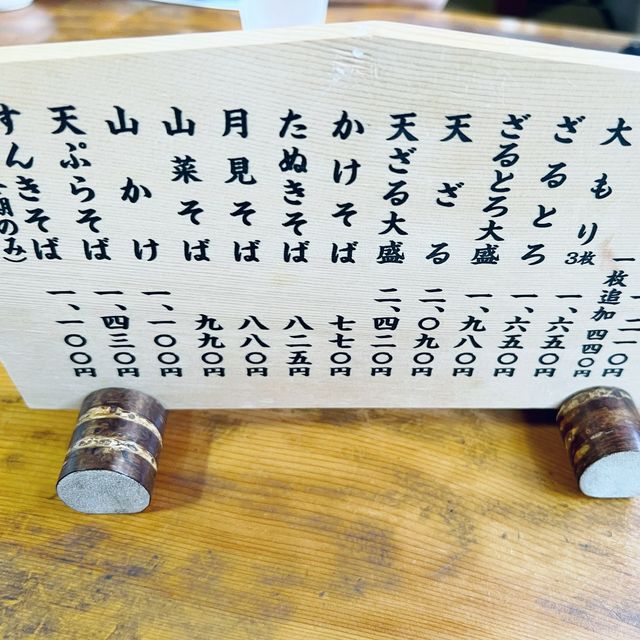 大もり 一、二一〇円
3枚 一、六五〇円
一枚追加 四四〇円
ざるとろ 一、六五〇円
ざるとろ大盛 一、九八〇円
天ざる 二、〇九〇円
天ざる大盛 二、四二〇円
かけそば 七七〇円
たぬきそば 八二五円
月見そば 八八〇円
山菜そば 九九〇円
山かけ 一、一〇〇円
天ぷらそば 一、四三〇円
すんきそば 一、一〇〇円
期のみ)